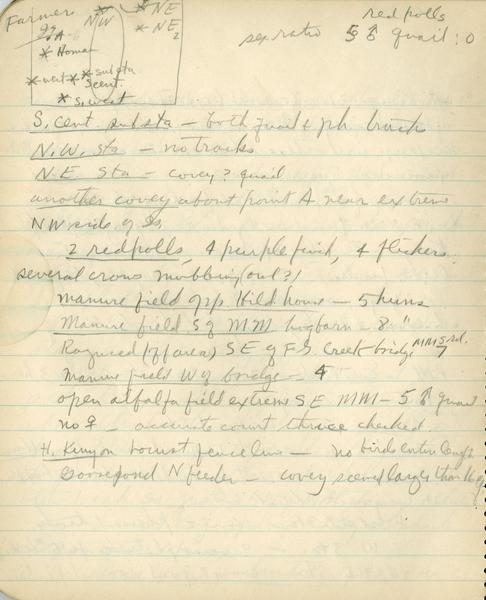 Farmers
Is.
A
NW
NE
NE 2
Home
west
substa
S cent.
S. west
redpolls
sex ratio 5 ♂ quail : 0
S. cent. substa — both quail & ph. tracks
N.W. sta — no tracks
N.E. sta — covey? quail
another covey about point A near extreme
NW side of Is.
2 redpolls, 4 purple finch, 4 flickers
several crows mobbing (owl?)
manure field opp. Hild house — 5 huns
Manure field S of MM hogbarn — 8 "
Ragweed (7/ area) SE of F.S. Creek bridge MM S rd. 7
Manure field W of bridge — 4
open alfalfa field extreme SE MM — 5 ♂ quail
no ♀ — accurate count thrice checked
H. Kenyon locust fence line — no birds
Goosepond N feeder — covey seemed larger than 16